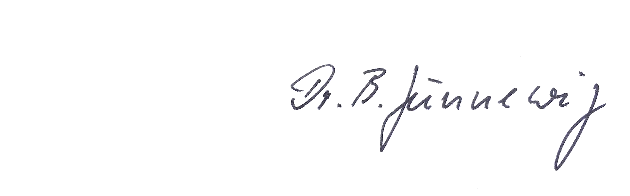 Dr. B. Jünnewig